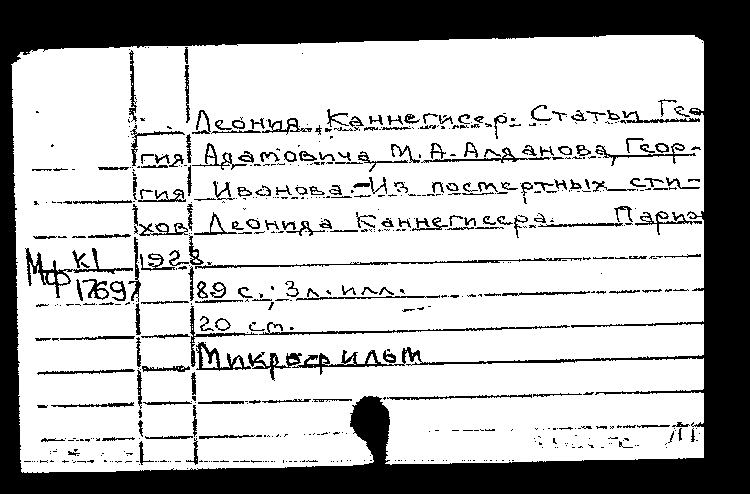 Леонид Каннегисер. Статьи Гео
гия Адамовича, М. А. Алданова, Геор-
гия Иванова. - Из посмертных сти-
хов Леонида Каннегисера. Париж
1928.
Мф К1
17697
89 с.; 3 л. илл.
20 см.
Микрофильм